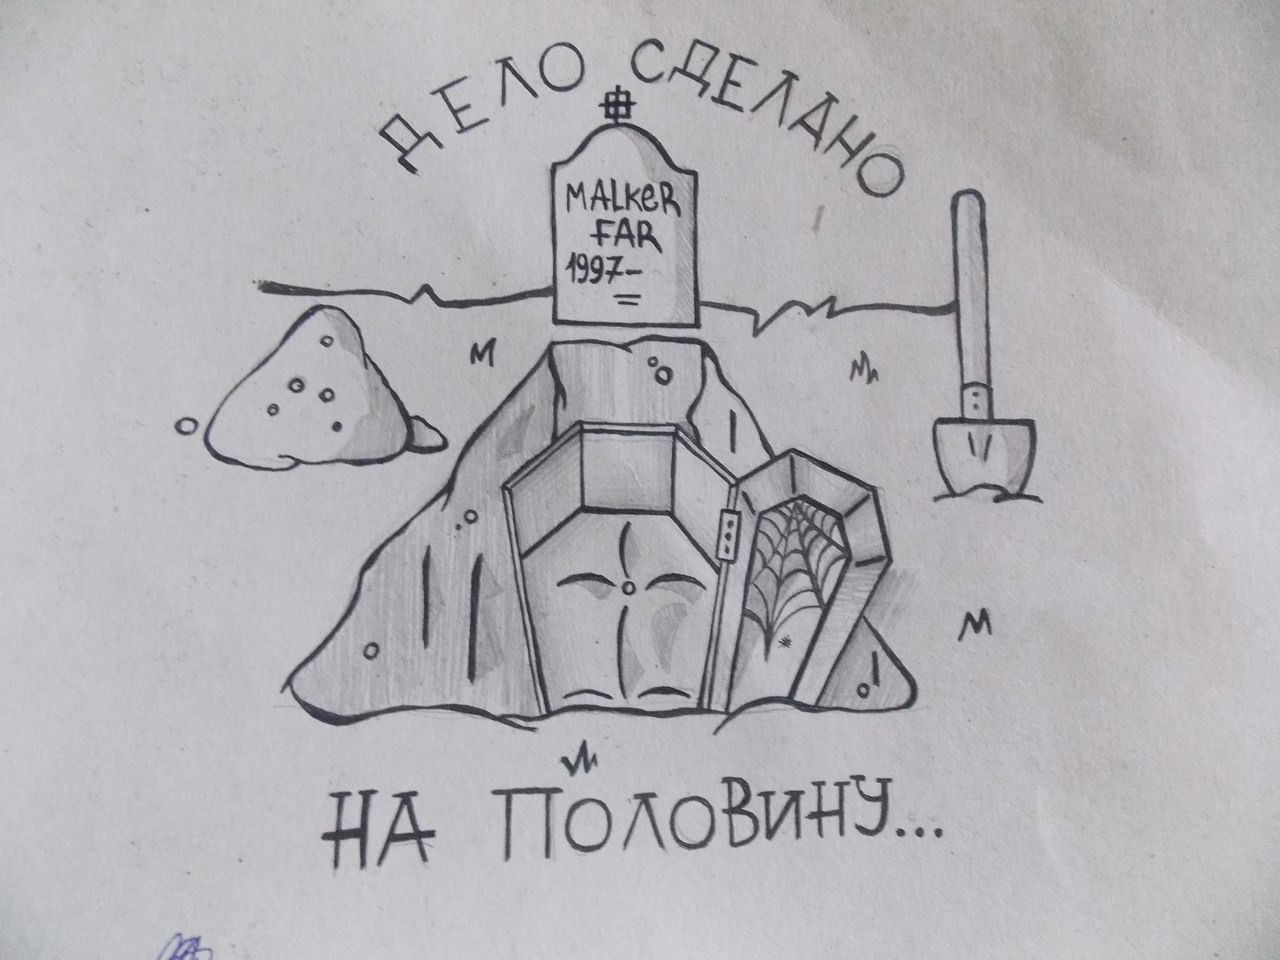 ДЕЛО СДЕЛАНО
MALKER
FAR
1997-
НА ПОЛОВИНУ...